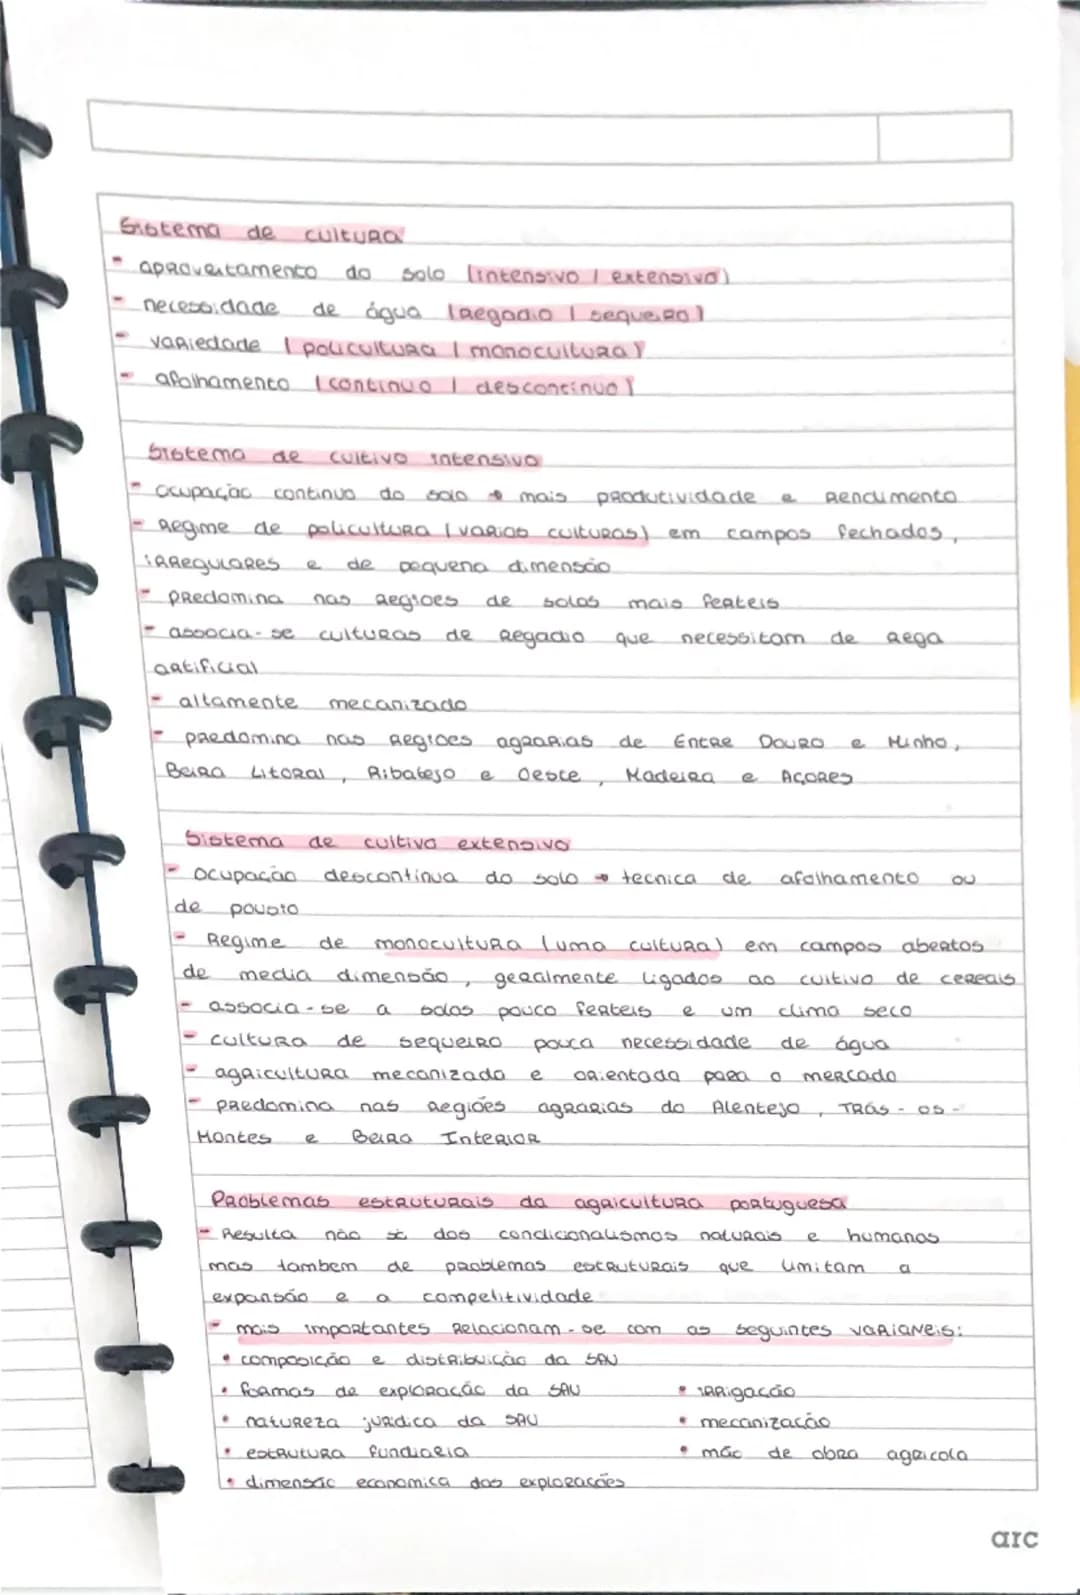 Sistema de cultura
- aproveitamento do solo (intensivo / extensivo)
- necessidade de água (regadio / sequeiro)
- variedade (policultura / monocultura)
- afolhamento (continuo / descontinuo)
Sistema de cultivo intensivo
- ocupação continuo do solo → mais produtividade e rendimento
- Regime de policultura (varias culturas) em campos fechados,
irregulares e de pequena dimensão
- predomina nas regiões de solos mais ferteis
- associa-se culturas de regadio que necessitam de rega
artificial
- altamente mecanizado
- predomina nas regiões agrarias de Entre Douro e Minho,
Beira Litoral, Ribatejo e Oeste, Madeira e Açores
Sistema de cultivo extensivo
- ocupação descontinua do solo → tecnica de afolhamento ou
de pousio
- Regime de monocultura (uma cultura) em campos abertos
de media dimensão, geralmente ligados ao cultivo de cereais
- associa-se a solos pouco ferteis e um clima seco
- cultura de sequeiro pouca necessidade de água
- agricultura mecanizada e orientada para o mercado
- predomina nas regiões agrarias do Alentejo, Trás-os-
Montes e Beira Interior
Problemas estruturais da agricultura portuguesa
- Resulta não só dos condicionalismos naturais e humanos
mas tambem de problemas estruturais que limitam a
expansão e a competitividade
- mais importantes relacionam-se com as seguintes variaveis:
• composição e distribuição da SAU
• formas de exploração da SAU
• irrigação
• natureza juridica da SAU
• mecanização
• estrutura fundiaria
• mão de obra agricola
• dimensão economica das explorações
arc